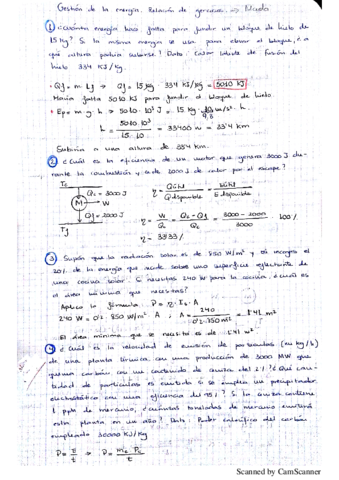 Gestión de la energía. Relación de ejercicios.
① ¿Cuánta energía hace falta para fundir un bloque de hielo de
15 kg? Si la misma energía se usa para elevar el bloque, ¿a
qué altura podría subirse? Dato: Calor latente de fusión del
hielo 334 KJ/Kg
• Qf = m · Lf → Qf = 15 kg · 334 KJ/Kg = 5010 kJ
Haría falta 5010 kJ para fundir el bloque de hielo.
• Ep = m · g · h → 5010 · 10³ J = 15 kg · 10 m/s² · h
9,8
h = 5010·10³ / 15·10 = 33400 m = 33'4 km
Subiría a una altura de 33'4 km.
② ¿Cuál es la eficiencia de un motor que genera 3000 J durante
la combustión y cede 2000 J de calor por el escape?
η = Qútil / Qdisponible = Wútil / Edisponible
Q₂ = 3000 J
M → W
Q₁ = 2000 J
η = W / Q₂ = Q₂ - Q₁ / Q₂ = 3000 - 2000 / 3000 · 100 %
η = 33'33 %
③ Supón que la radiación solar es de 850 W/m² y se recoge el
20% de la energía que incide sobre una superficie reflectante de
una cocina solar. Si necesitas 240 W para la cocción, ¿cuál es
el área mínima que necesitas?
Aplico la fórmula: P = η · Is · A
240 W = 0'2 · 850 W/m² · A ; A = 240 / 0'2 · 850 = 1'41 m²
El área mínima que se necesita es de 1'41 m²
④ ¿Cuál es la velocidad de emisión de partículas (en kg/s)
de una planta térmica con una producción de 3000 MW que
quema carbón con un contenido de ceniza del 2%? ¿Qué cantidad
de partículas es emitida si se emplea un precipitador
electrostático con una eficiencia del 95%? Si la ceniza contiene
1 ppm de mercurio, ¿cuántas toneladas de mercurio emitirá
esta planta en un año? Dato: Poder calorífico del carbón
empleado 30000 KJ/Kg
Scanned by CamScanner